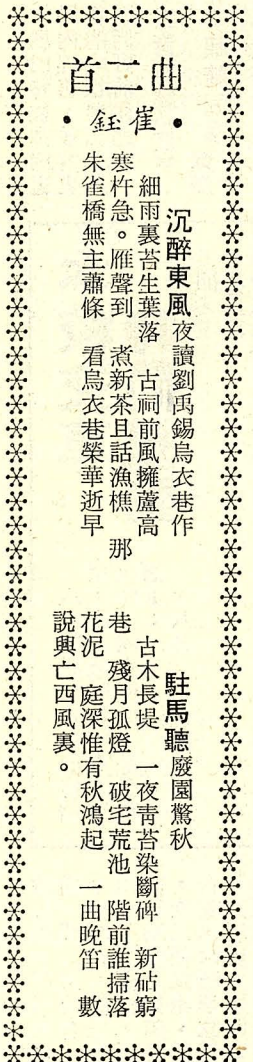 曲二首
•崔鈺•
沉醉東風夜讀劉禹錫烏衣巷作
細雨裏苔生葉落　古祠前風擁蘆高
寒杵急。雁聲到　煮新茶且話漁樵　那
朱雀橋無主蕭條　看烏衣巷榮華逝早
駐馬聽廢園驚秋
古木長堤　一夜靑苔染斷碑　新砧窮
巷　殘月孤燈　破宅荒池　階前誰掃落
花泥　庭深惟有秋鴻起　一曲晚笛　數
說興亡西風裏。